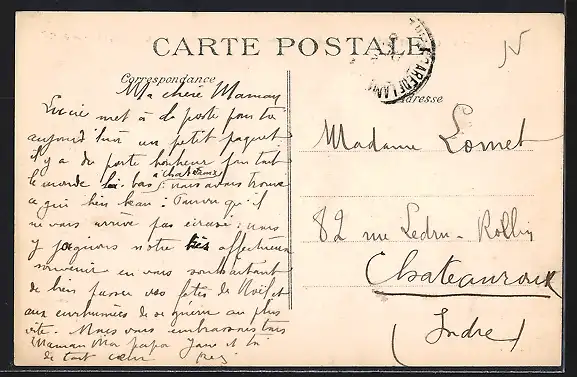 CARTE POSTALE
Correspondance
Adresse
Ma chère Maman
Lucie met à la poste pour toi
aujourd'hui un petit paquet
il y a du porte bonheur pour tout
le monde là-bas à Chateauroux nous avons trouvé
ça qui bien beau : Pourvu qu'il
ne vous arrive pas écrasé : nous
y joignons notre affectueux
souvenir en vous souhaitant
de bien passer vos fêtes de Noël et
aux enrhumées de se guérir au plus
vite. Nous vous embrassons tous
Maman Ma papa Jane et toi
de tout cœur
Madame Lornet
82 rue Ledru-Rollin
Chateauroux
(Indre)